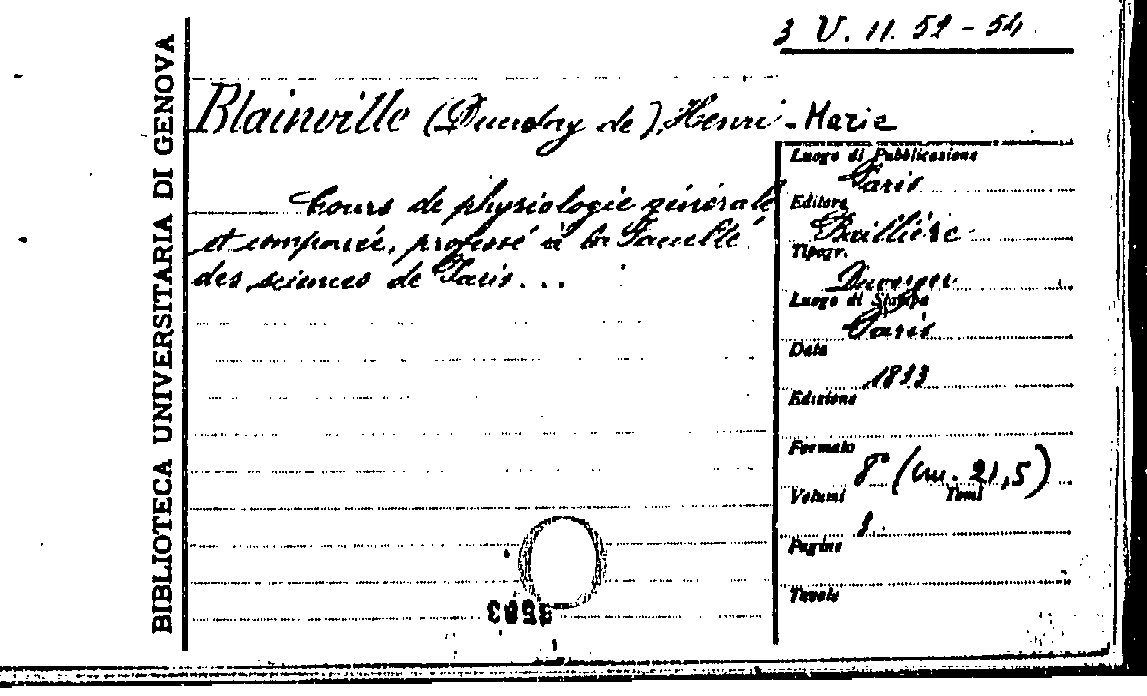 3 V. 11. 52 - 54
BIBLIOTECA UNIVERSITARIA DI GENOVA
Blainville (Ducrotay de), Henri-Marie
Cours de physiologie générale
et comparée, professé à la Faculté
des sciences de Paris...
Luogo di Pubblicazione
Paris
Editore
Baillière
Tipogr.
Luogo di Stampa
Paris
Data
1833
Edizione
Formato
8° (cm. 21,5)
Volumi Tomi
Pagine
Tavole